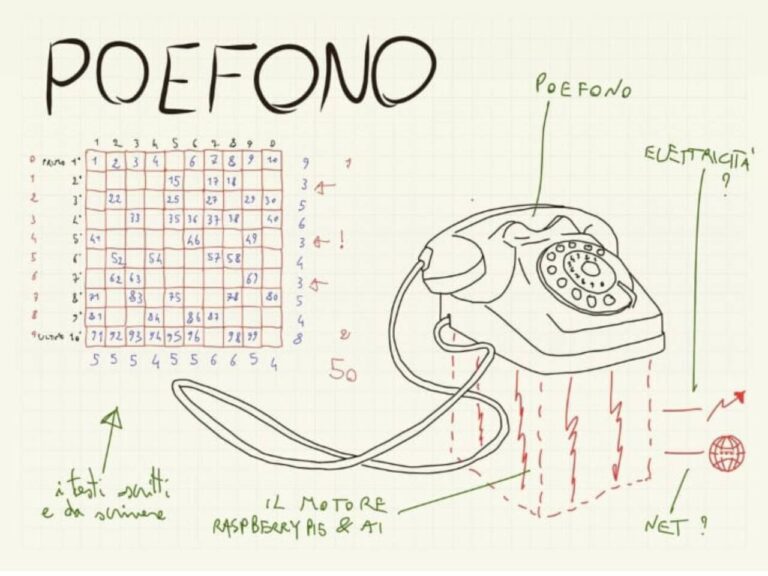 POEFONO
POEFONO
ELETTRICITÀ
?
1 2 3 4 5 6 7 8 9 0
0 PRIMO 1° 1 2 3 4 6 7 8 9 10 9 1
1 2° 15 17 18 3
2 3° 22 25 27 29 30 5
3 4° 33 35 36 37 38 40 6
4 5° 41 46 49 3 !
5 6° 52 54 57 58 4
6 7° 62 63 69 3
7 8° 71 83 75 78 80 5
8 9° 81 84 86 87 4
9 ULTIMO 10° 91 92 93 94 95 96 98 99 8 2
5 5 5 4 5 5 6 6 5 4 50
i testi scritti
e da scrivere
IL MOTORE
RASPBERRYPI5 & AI
NET ?